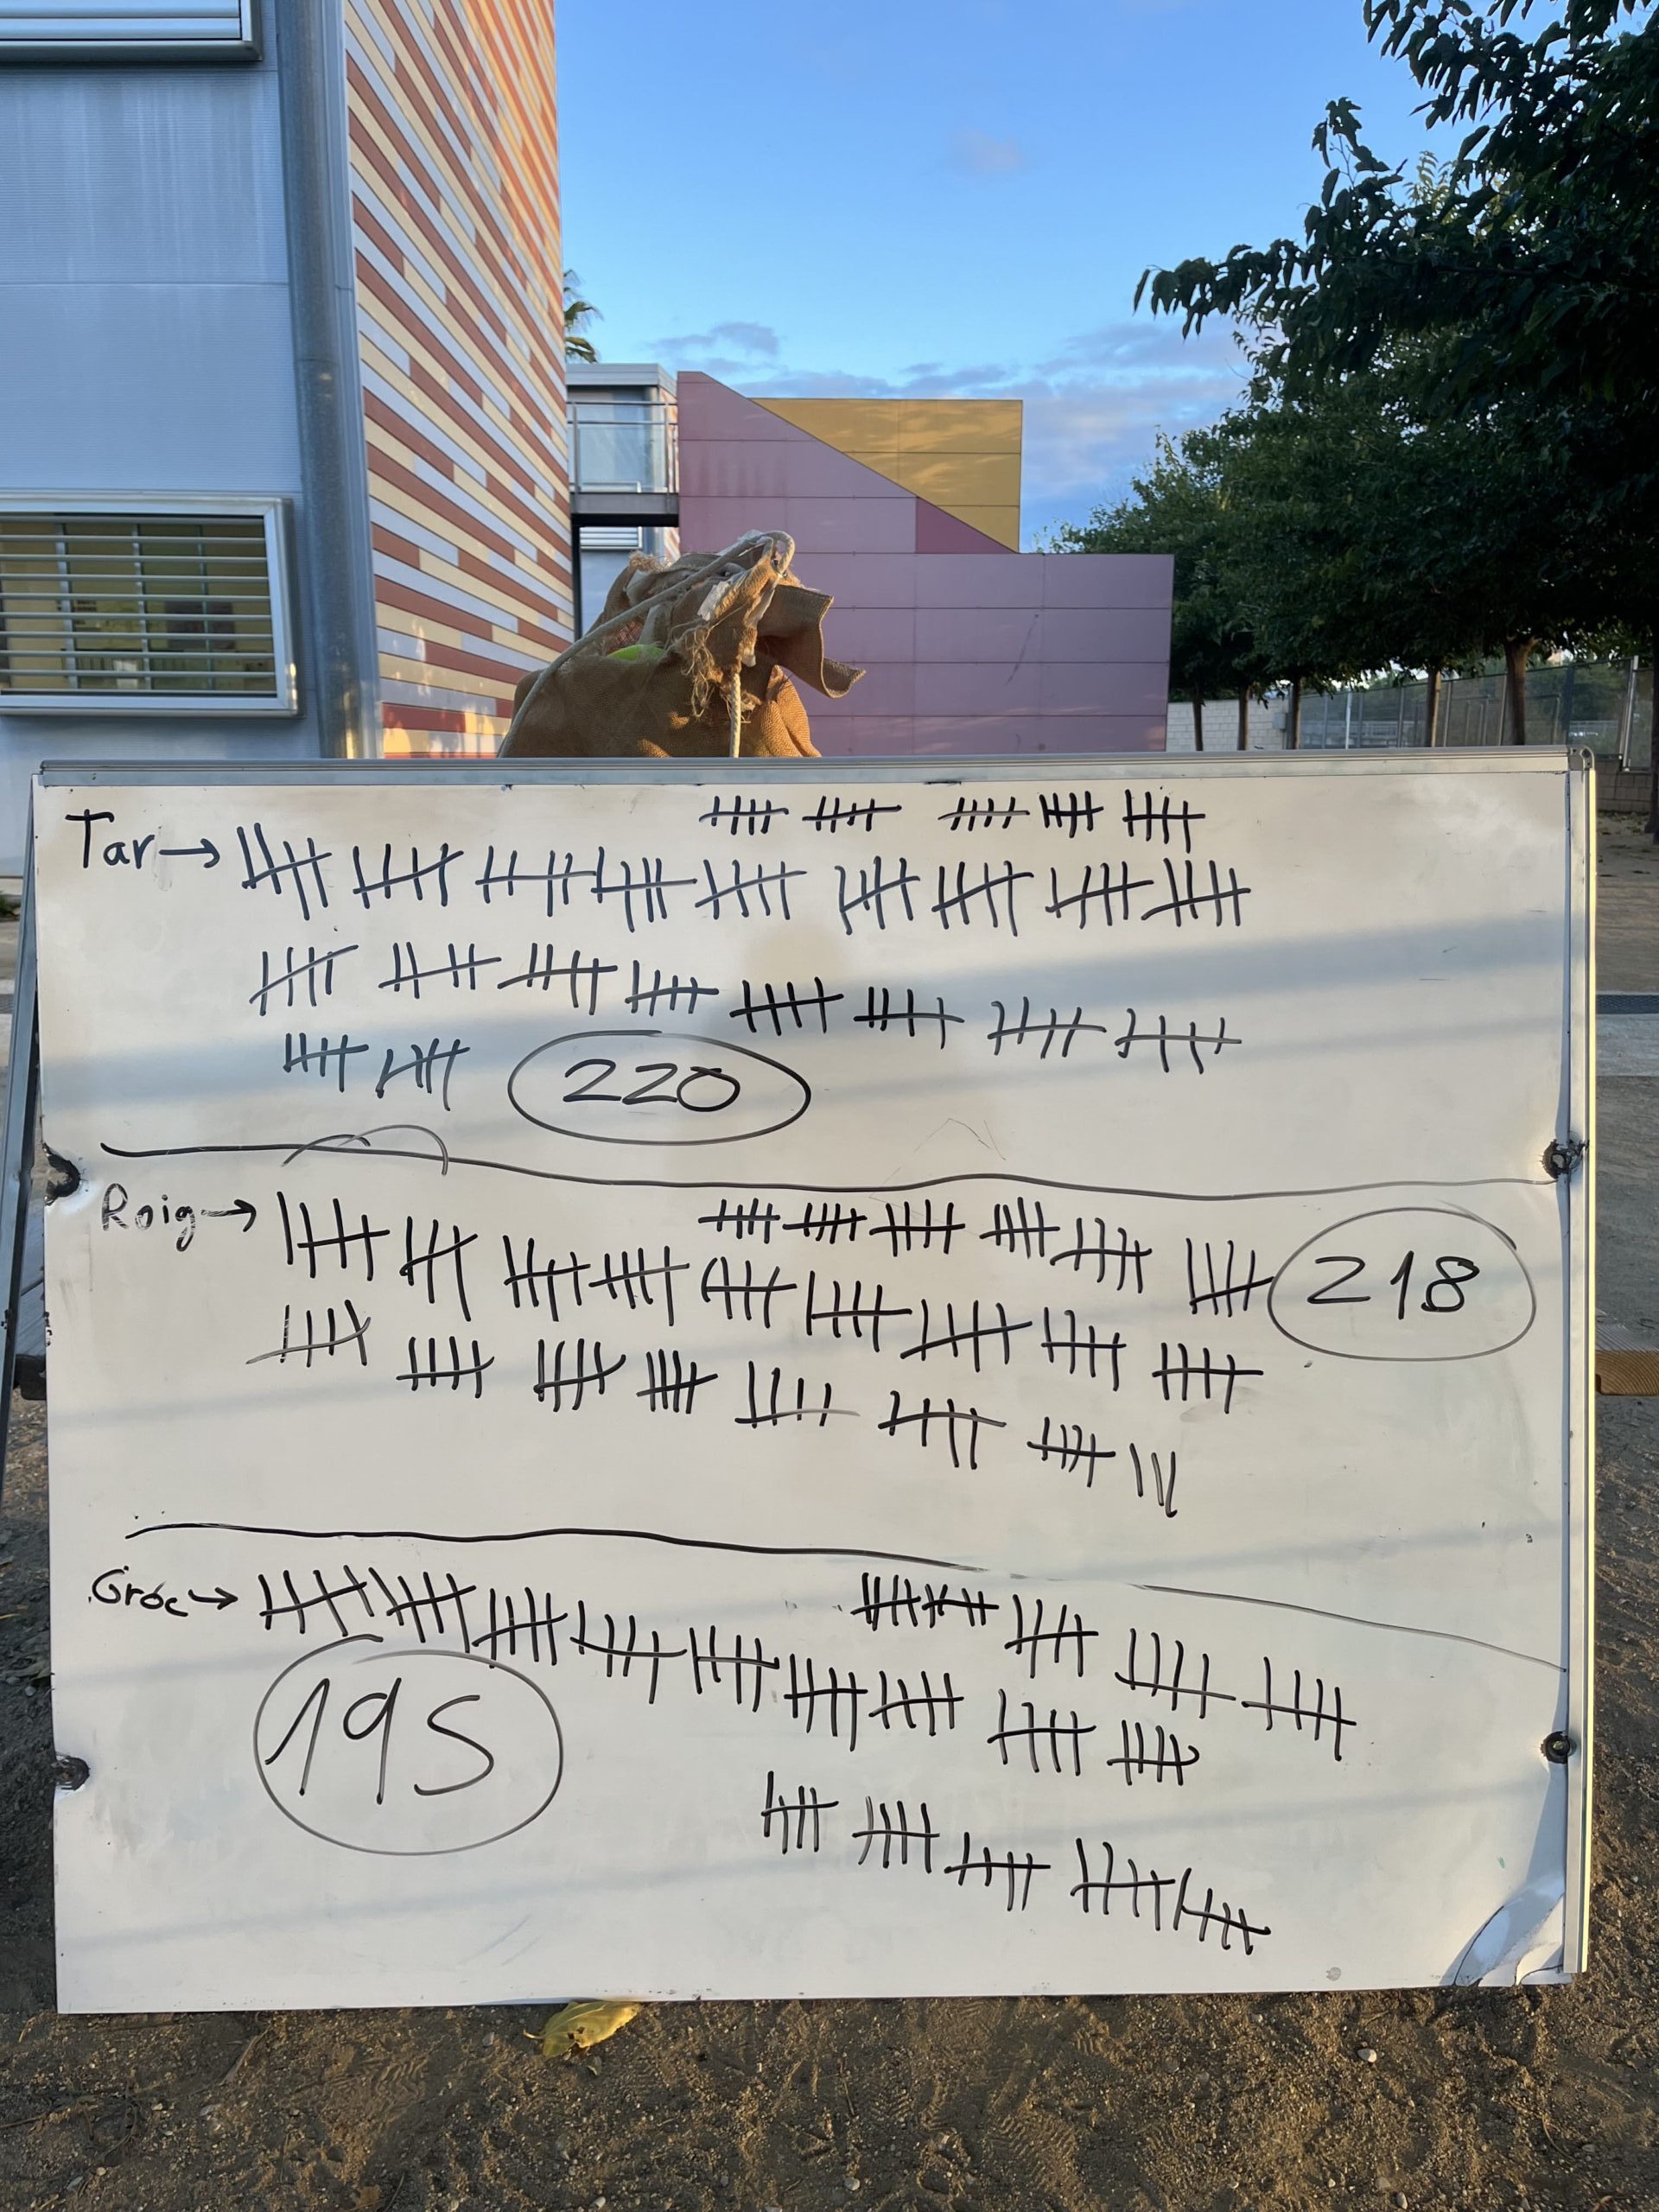 Tar →
220
Roig →
218
Groc →
195